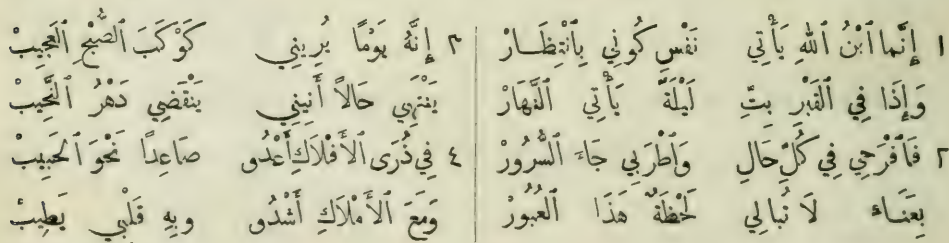 ١ إِنَّما ٱبْنُ ٱللهِ يَأْتِي نَفْسِ كُونِي بِٱنْتِظَارْ
وَإِذَا فِي ٱلْقَبْرِ بِتِّ لَيْلَةً يَأْتِي ٱلنَّهَارْ
٢ فَٱفْرَحِي فِي كُلِّ حَالِ وَٱطْرَبِي جَاءَ ٱلسُّرُورْ
بِعَنَاءٍ لَا تُبَالِي لَحْظَةٌ هَذَا ٱلْعُبُورْ
٣ إِنَّهُ يَوْمًا يُرِينِي كَوْكَبَ ٱلصُّبْحِ ٱلْعَجِيبْ
يَنْتَهِي حَالاً أَنِينِي يَنْقَضِي دَهْرُ ٱلنَّحِيبْ
٤ فِي ذُرَى ٱلْأَفْلَاكِ أَعْدُو صَاعِداً نَحْوَ ٱلْحَبِيبْ
وَمَعَ ٱلْأَمْلَاكِ أَشْدُو وبِهِ قَلْبِي يَطِيبْ